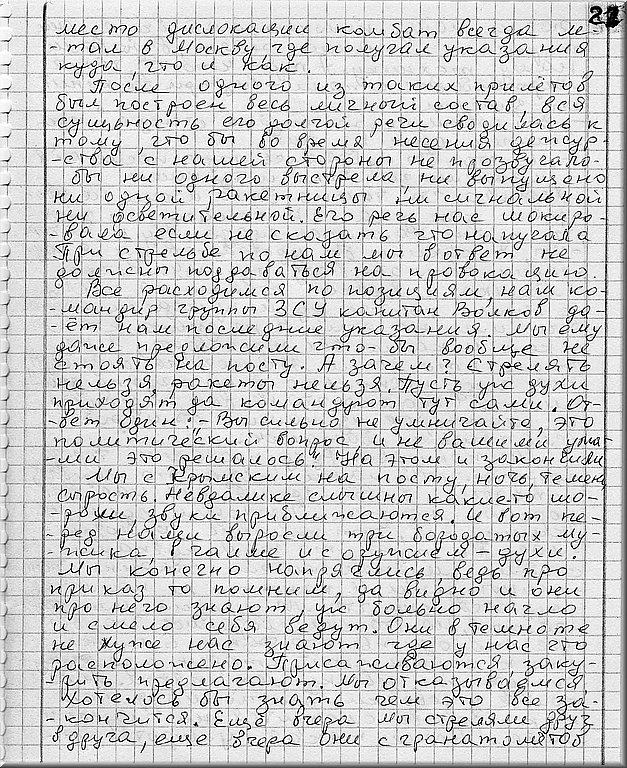 22
место дислокации комбат всегда ле-
-тал в Москву где получал указания
куда, что и как.
После одного из таких прилётов
был построен весь личный состав, вся
сущьность его долгой речи сводилась к
тому, что бы во время несения дежур-
-ства с нашей стороны не прозвучало-
бы ни одного выстрела, ни выпущено
ни одной ракетницы ни сигнальной
ни осветительной. Его речь нас шокиро-
-вала если не сказать что напугала
При стрельбе по нам мы в ответ не
должны поддаваться на провокацию.
Все расходимся по позициям, нам ко-
-мандир группы ЗСУ капитан Волков да-
-ёт нам последние указания. Мы ему
даже предложили что-бы вообще не
стоять на посту. А зачем? Стрелять
нельзя, ракеты нельзя. Пусть уж духи
приходят да командуют тут сами. От-
-вет один:- Вы сильно не умничайте, это
политический вопрос и не вашими ума-
-ми это решалось! На этом и закончили
Мы с Крымским на посту, ночь, темень
сырость. Невдалике слышны какие-то шо-
-рохи, звуки приближаются. И вот пе-
-ред нами выросли три бородатых му-
-жика, в чалме и с оружием - духи.
Мы конечно напряглись, ведь про
приказ то помним, да видно и они
про него знают, уж больно нагло
и смело себя ведут. Они в темноте
не хуже нас знают где у нас что
расположено. Присаживаются, заку-
-рить предлагают. Мы отказываемся
Хотелось бы знать чем это все за-
-кончится. Ещё вчера мы стреляли друг
в друга, еще вчера они с гранатомётов